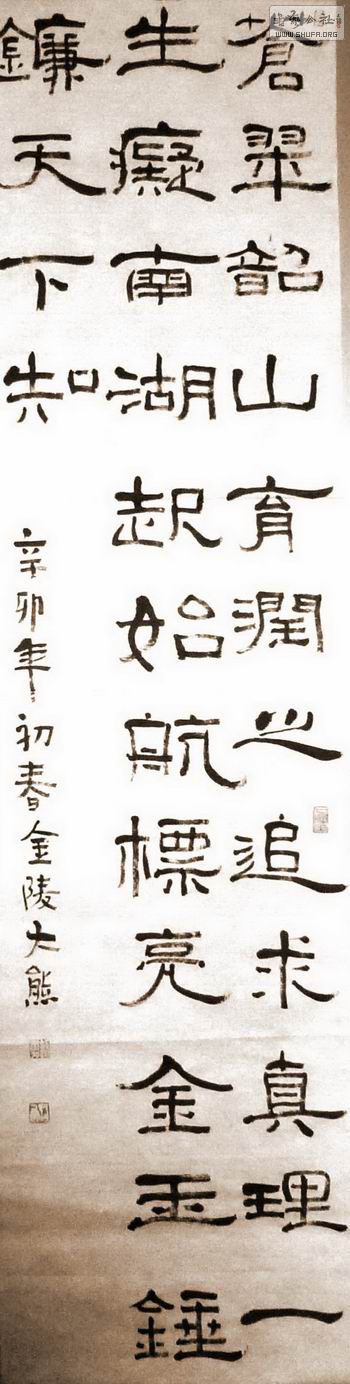 蒼翠韶山育潤之追求真理一
生癡南湖起始航標亮金玉錘
鐮天下知
辛卯年初春金陵大熊
書法公社
WWW.SHUFA.ORG